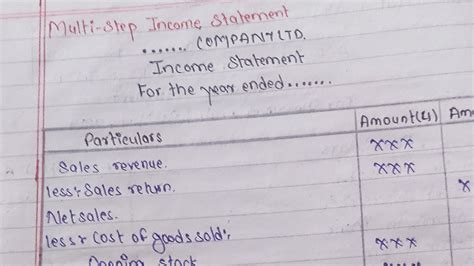 Multi-step Income Statement
....... COMPANY LTD.
Income Statement
For the year ended.......
Particulars Amount(£) Am
Sales revenue. xxx
less: Sales return. xxx
Net sales. x
less: Cost of goods sold:
Opening stock xxx